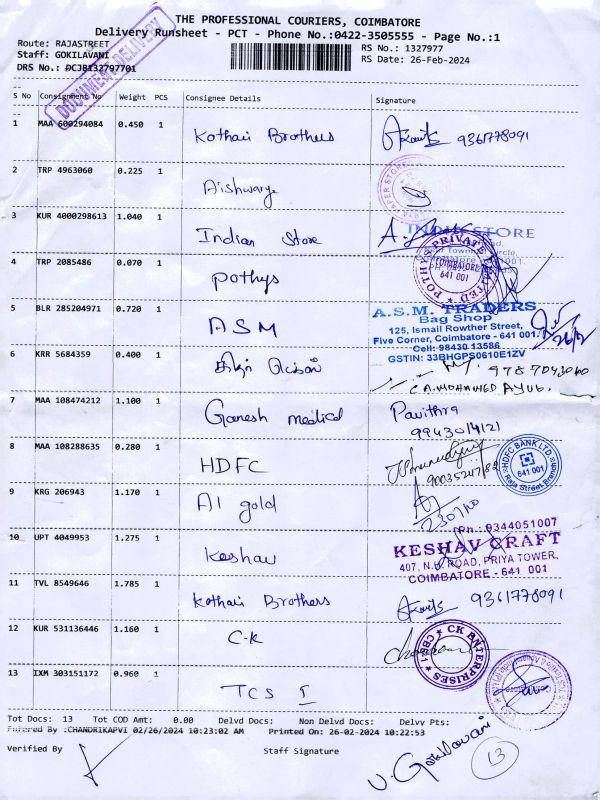 THE PROFESSIONAL COURIERS, COIMBATORE
Delivery Runsheet - PCT - Phone No.:0422-3505555 - Page No.:1
Route: RAJASTREET
Staff: GOKILAVANI
DRS No.: DCJB132797701
RS No.: 1327977
RS Date: 26-Feb-2024
DOCUMENT DELIVERY
S No Consignment No Weight PCS Consignee Details Signature
1 MAA 600294084 0.450 1 Kothari Brothers 9361778091
2 TRP 4963060 0.225 1 Aishwarya
3 KUR 4000298613 1.040 1 Indian Store
INDIA STORE
4 TRP 2085486 0.070 1 Pothys
POTHYS PRIVATE LIMITED
COIMBATORE
641 001
5 BLR 285204971 0.720 1 ASM
A.S.M. TRADERS
Bag Shop
125, Ismail Rowther Street,
Five Corner, Coimbatore - 641 001.
Cell: 98430 13586
GSTIN: 33BHGPS0610E1ZV
26/2
6 KRR 5684359 0.400 1
9787043060
C.A. MOHAMED AYUB.
7 MAA 108474212 1.100 1 Ganesh medical Pavithra
8 MAA 108288635 0.280 1 HDFC
HDFC BANK LTD
641 001
Raja Street Branch
9 KRG 206943 1.170 1 A1 gold
10 UPT 4049953 1.275 1 Keshav
Ph.: 9344051007
KESHAV CRAFT
407, N.H. ROAD, PRIYA TOWER,
COIMBATORE - 641 001
11 TVL 8549646 1.785 1 Kothari Brothers 9361778091
12 KUR 531136446 1.160 1 C-K
CK ENTERPRISES
CBE-1
13 IXM 303151172 0.960 1 TCS I
Tot Docs: 13 Tot COD Amt: 0.00 Delvd Docs: Non Delvd Docs: Delvy Pts:
Entered By :CHANDRIKAPVI 02/26/2024 10:23:02 AM Printed On: 26-02-2024 10:22:53
Verified By Staff Signature
V. Gokilavani
13